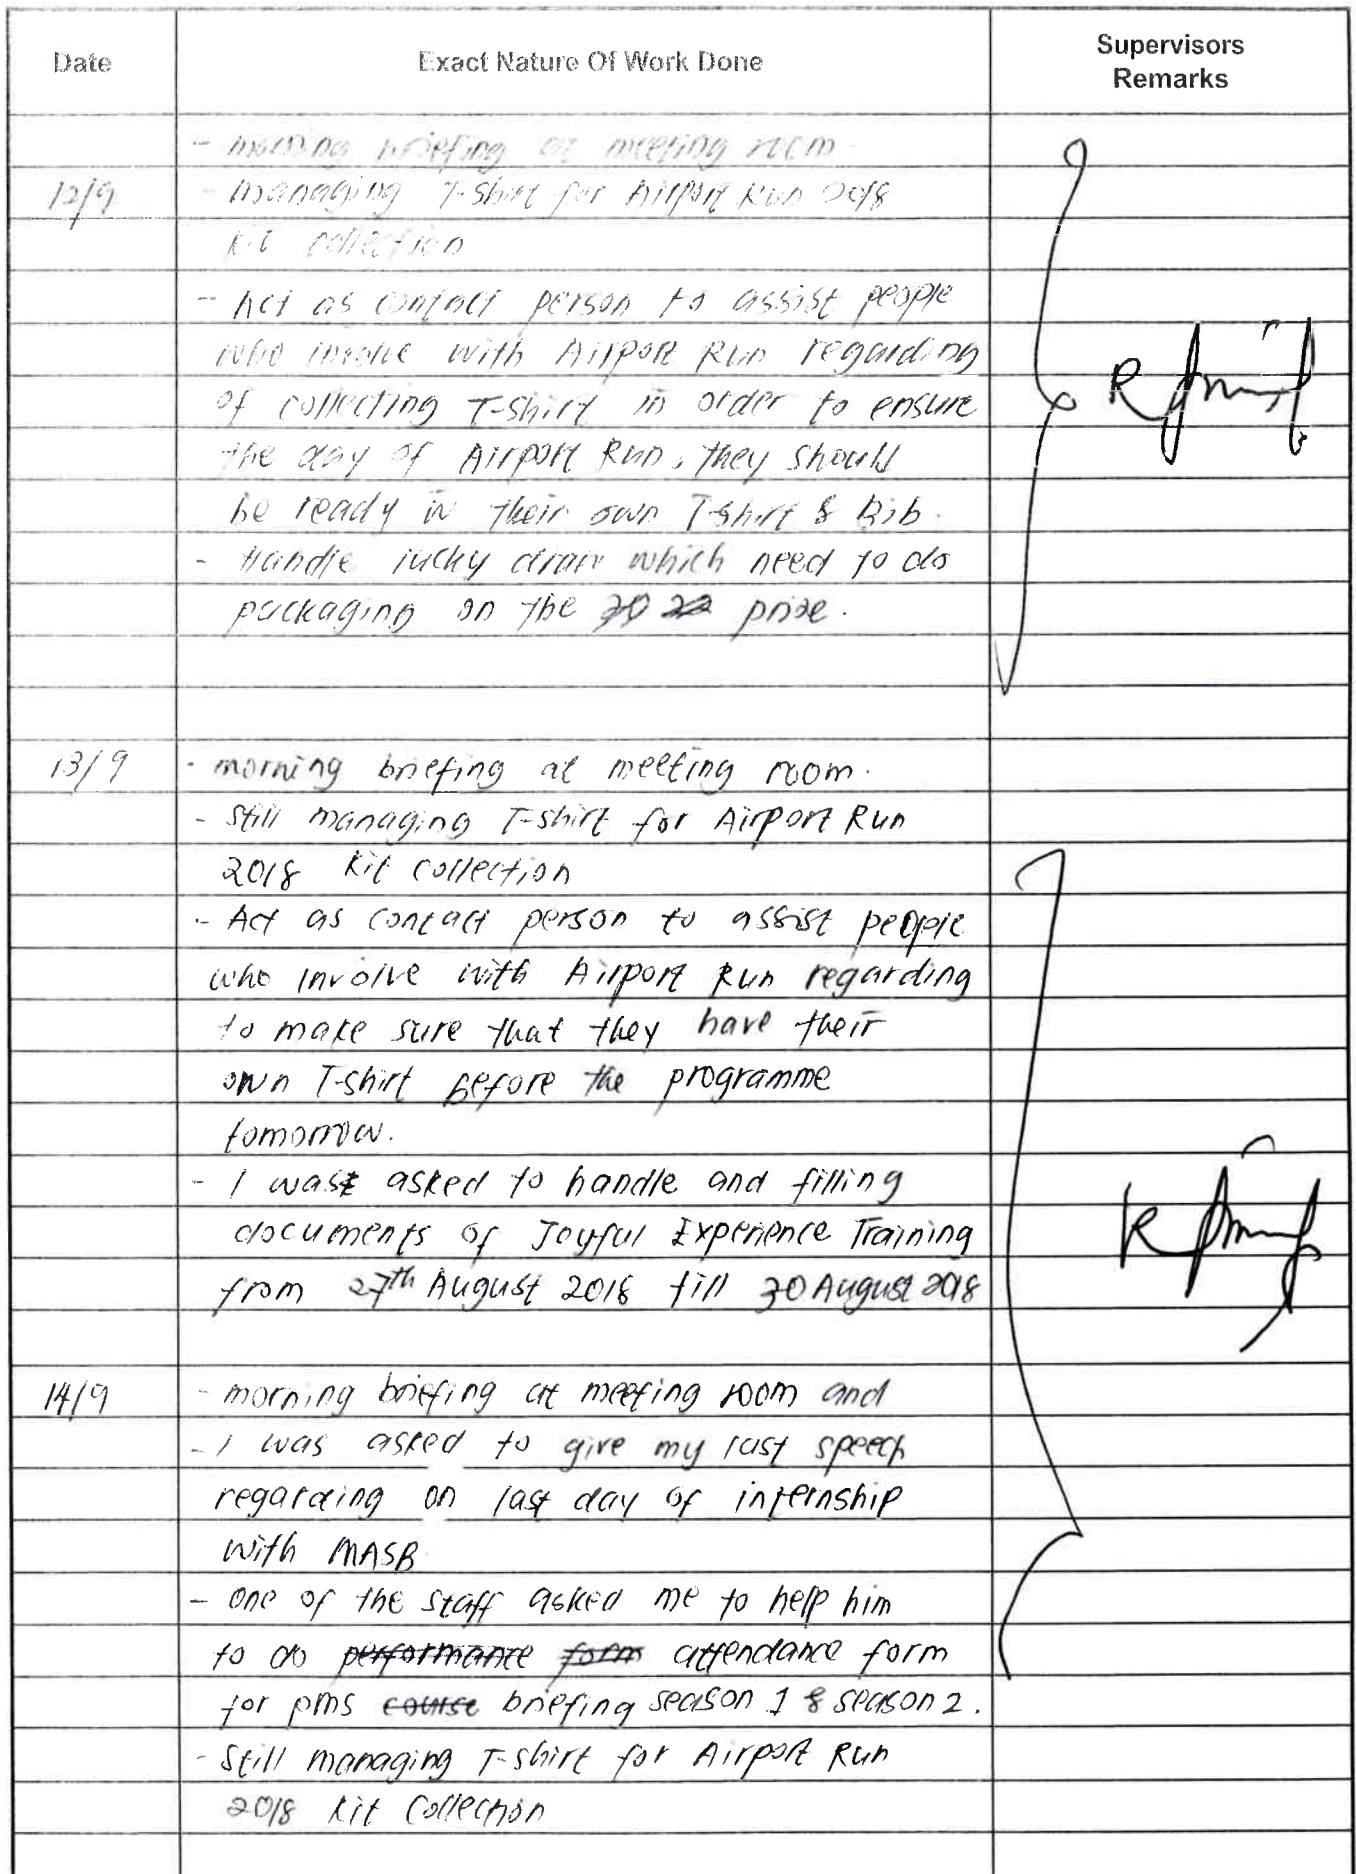 Date Exact Nature Of Work Done Supervisors Remarks
- morning briefing at meeting room.
12/9 - managing T-shirt for Airport Run 2018
Kit collection
- Act as contact person to assist people
who involve with Airport Run regarding
of collecting T-shirt in order to ensure
the day of Airport Run, they should
be ready in their own T-shirt & Bib.
- Handle lucky draw which need to do
packaging on the prize.
13/9 - morning briefing at meeting room.
- Still managing T-shirt for Airport Run
2018 Kit Collection
- Act as contact person to assist people
who involve with Airport Run regarding
to make sure that they have their
own T-shirt before the programme
tomorrow.
- I was asked to handle and filling
documents of Joyful Experience Training
from 27th August 2018 till 30 August 2018
14/9 - morning briefing at meeting room and
- I was asked to give my last speech
regarding on last day of internship
with MASB
- One of the staff asked me to help him
to do performance form attendance form
for pms course briefing season 1 & season 2.
- Still managing T-shirt for Airport Run
2018 Kit Collection